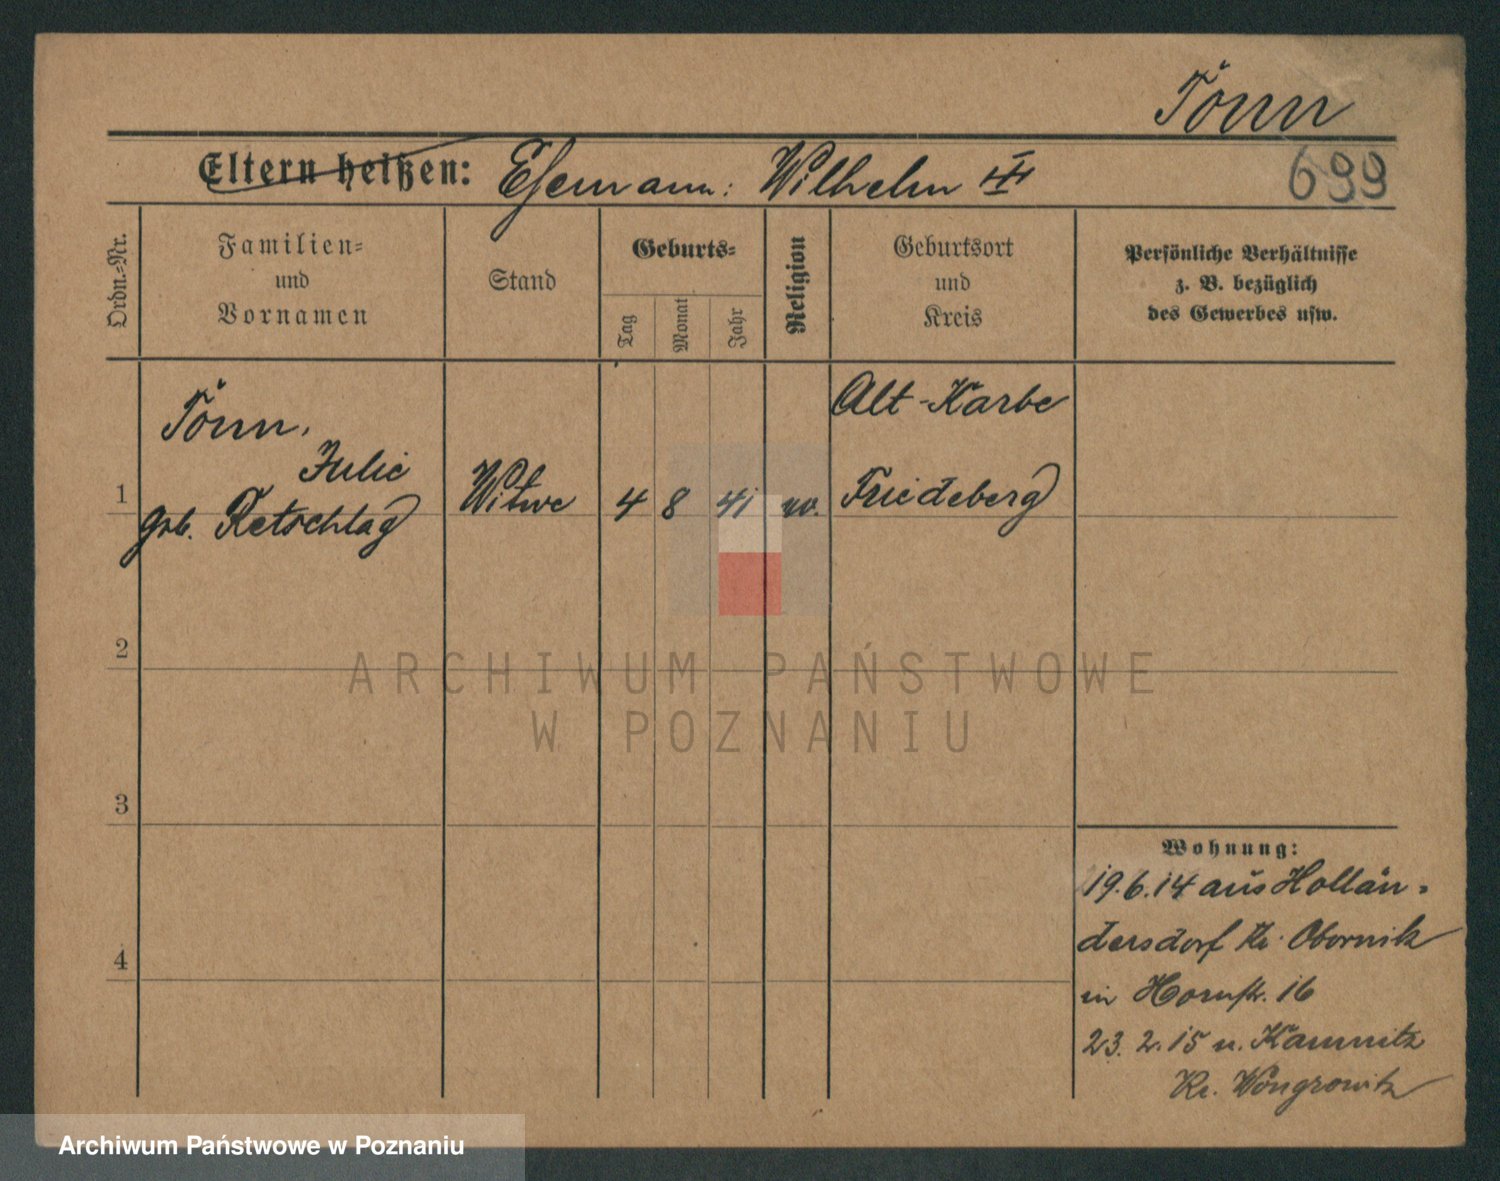 Tönn
Eltern heißen: Ehemann: Wilhelm
699
Ordn.-Nr.
Familien-
und
Vornamen
Stand
Geburts-
Tag
Monat
Jahr
Religion
Geburtsort
und
Kreis
Persönliche Verhältnisse
z. B. bezüglich
des Gewerbes usw.
Tönn,
Julie
1
geb. Retschlag
Witwe
4 8 41 ev.
Alt-Karbe
Friedeberg
2
3
4
Wohnung:
19.6.14 aus Hollän-
dersdorf Kr. Obornik
in Hornstr. 16
23.2.15 n. Kamnitz
Kr. Wongrowitz
ARCHIWUM PAŃSTWOWE
W POZNANIU
Archiwum Państwowe w Poznaniu